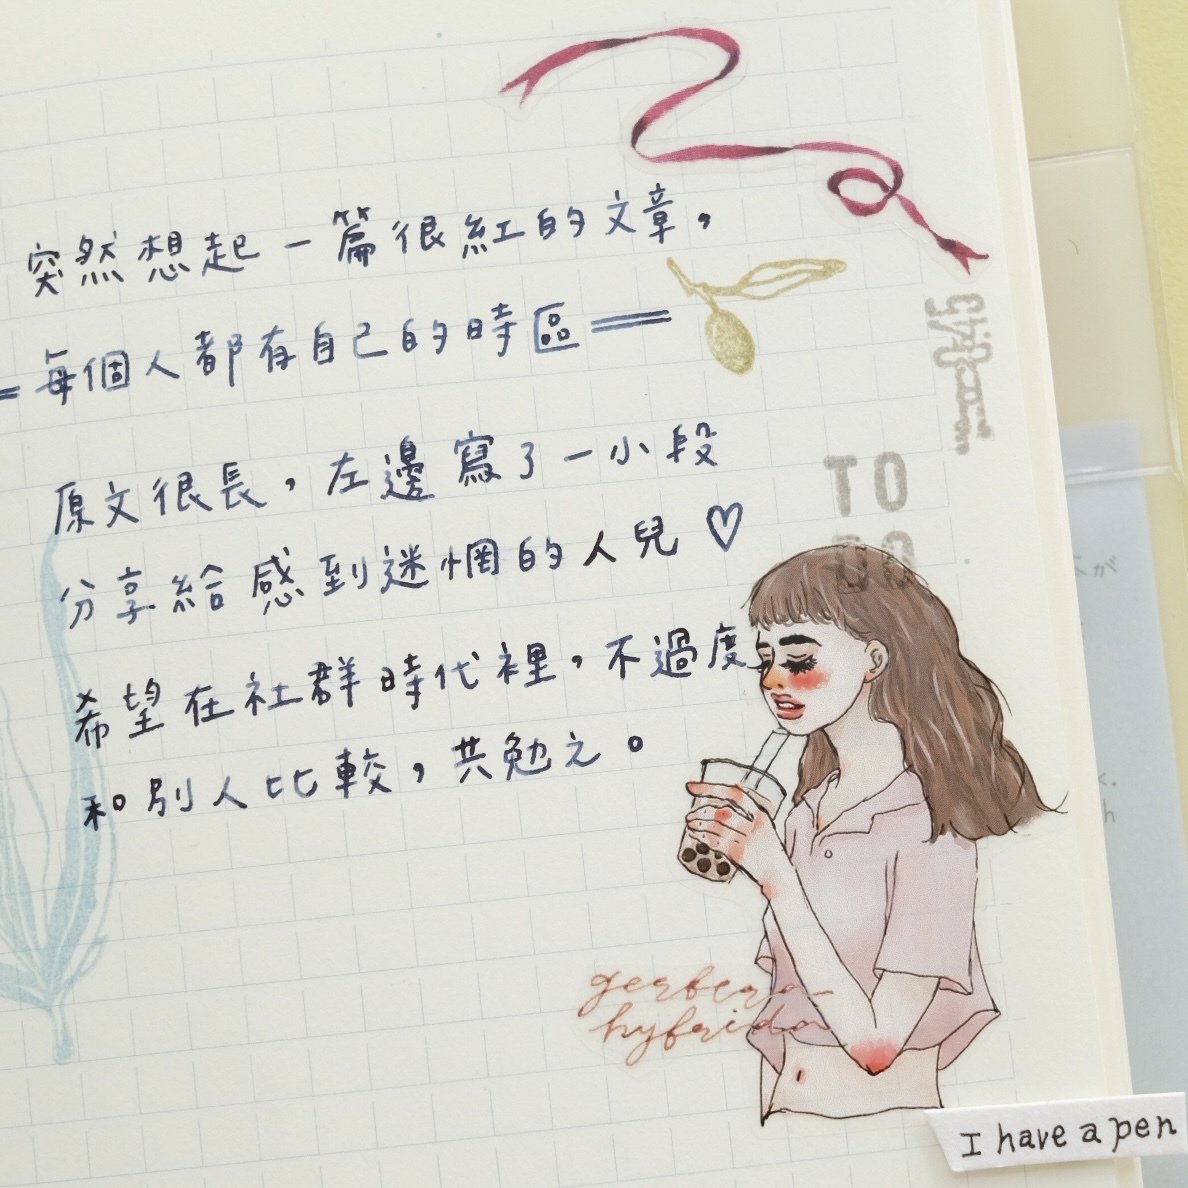 突然想起一篇很紅的文章，
=每個人都有自己的時區==
原文很長，左邊寫了一小段
分享給感到迷惘的人兒♡
希望在社群時代裡，不過度
和別人比較，共勉之。
TO
DO
gerbera
hybrida
I have a pen